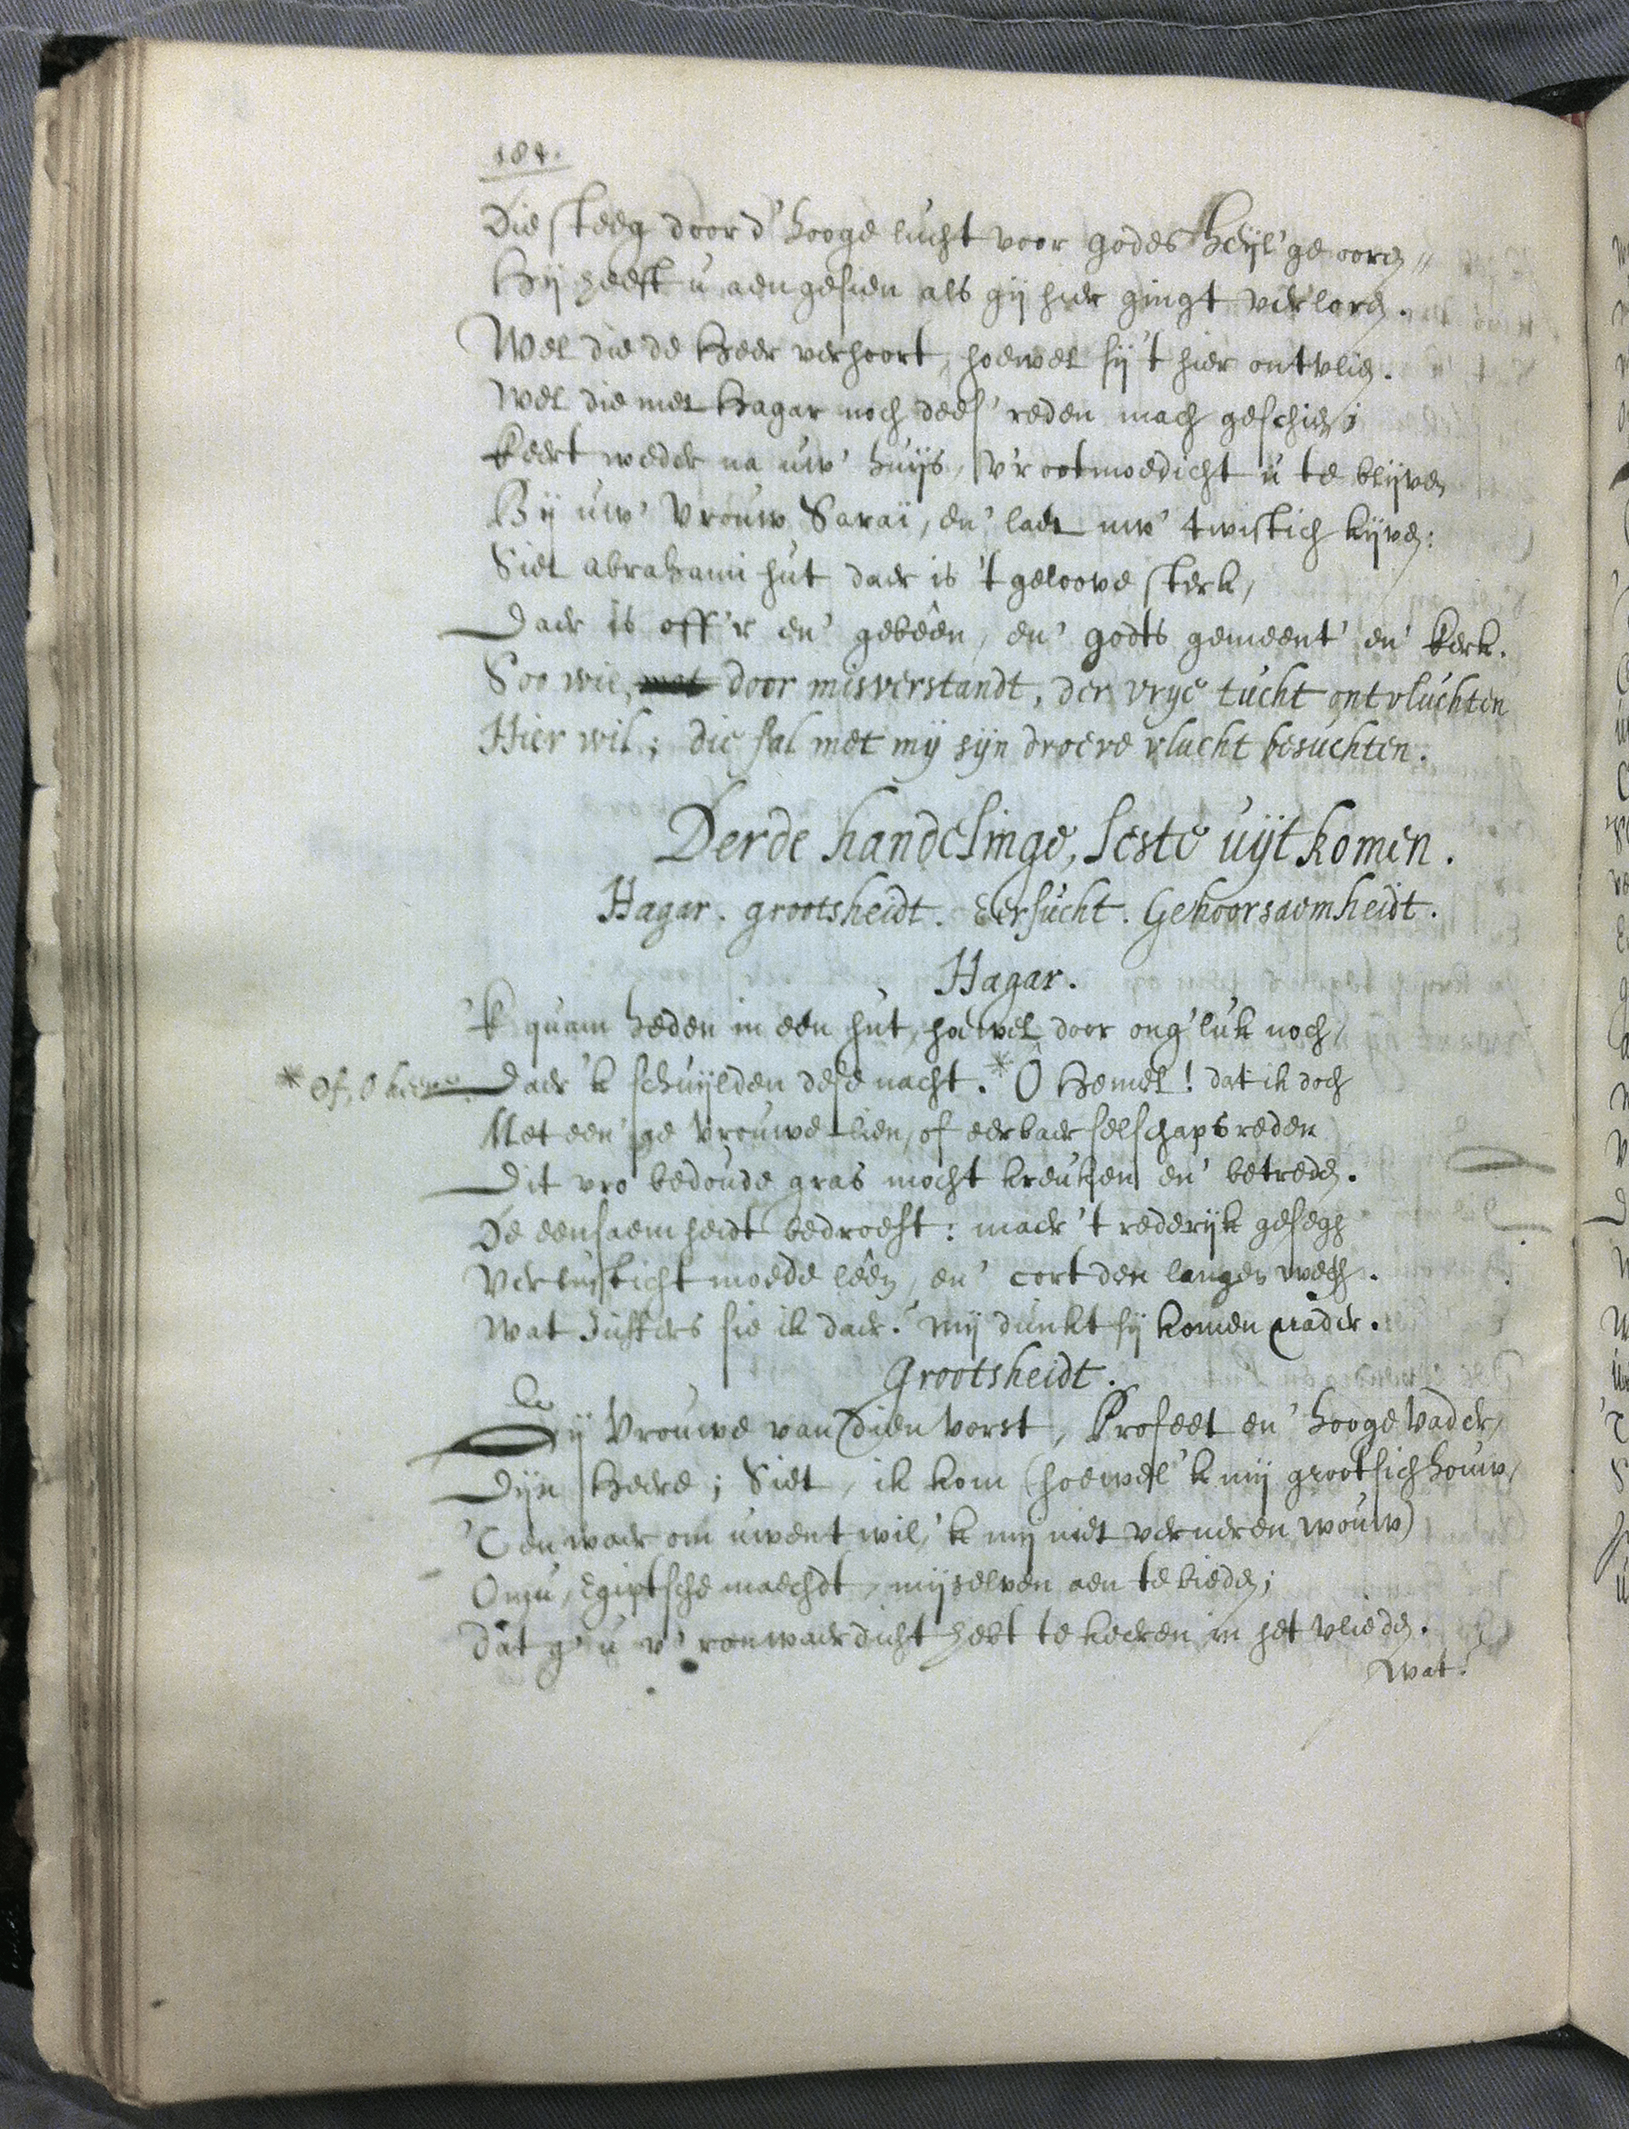 184.
Die steeg door d' hooge lucht voor godes heijl'ge ooren,
Hij heeft u aengesien als gij hier gingt verloren.
Wel die de Heer verhoort, hoewel sij 't hier ontvlien.
Wel die met Hagar noch dees' reden mach geschien;
Keert weder na uw' huijs, v'r ootmoedicht u te blijven
Bij uw' Vrouw Saraï, en' laet uw' twistich kijven:
Siet abrahami hut daer is 't geloove sterk,
Daer is off'r en' gebêên, en' godts gemeent' en' kerk.
Soo wie, door misverstandt, der vrije tucht ontvluchten
Hier wil; die sal met mij sijn droeve vlucht besuchten.
Derde handelinge, seste uijtkomen.
Hagar. grootsheidt. Eersucht. Gehoorsaemheidt.
Hagar.
'k quam heden in een hut, hoewel door ong'luk noch,
Daer 'k schuijlden dese nacht. * Ô Hemel! dat ik doch
* Of, O heere
Met een'ge vrouwe-lien, of eerbaer selschaps reden
Dit vro bedoude gras mocht kreuken en' betreden.
De eensaemheidt bedroeft: maer 't rederijk gesegh
Verlusticht moede lêên, en' cort den langen wech.
Wat Juffers sie ik daer? mij dunkt sij komen nader.
Grootsheidt.
Gij Vrouwe van dien vorst, Profeet en' hooge vader,
Dijn Heere; Siet, ik kom (hoewel 'k mij grootsich houw,
'T en waer om uwent wil, 'k mij niet verneren wouw)
Om u, Egiptsche maechdt, mijselven aen te bieden;
Dat g' u v'ronwaerdicht hebt te keeren in het vlieden.
Wat